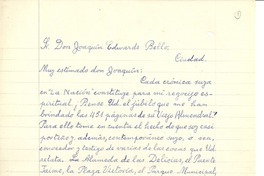 S. Don Joaquín Edwards Bello.
Ciudad.
Muy estimado don Joaquín:
Cada crónica suya
en "La Nación" constituye para mí regocijo es-
piritual. Piense Ud. el júbilo que me han
brindado las 1151 páginas de su "Viejo Almendral"!
Para ello tome en cuenta el hecho de que soy casi
porteño y además, contemporáneo suyo, co-
nocedor y testigo de varias de las cosas que Ud.
relata. La Alameda de las Delicias, el Puente
Jaime, la Plaza Victoria, el Parque Municipal,